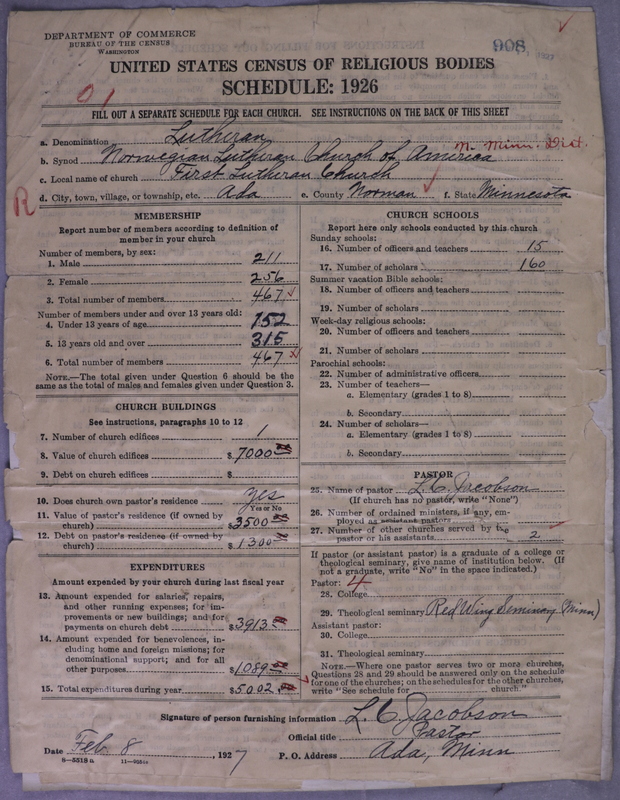 DEPARTMENT OF COMMERCE
BUREAU OF THE CENSUS
WASHINGTON
908
UNITED STATES CENSUS OF RELIGIOUS BODIES
SCHEDULE: 1926
FILL OUT A SEPARATE SCHEDULE FOR EACH CHURCH. SEE INSTRUCTIONS ON THE BACK OF THIS SHEET
a. Denomination Lutheran
N. Minn. Dist.
b. Synod Norwegian Lutheran Church of America
c. Local name of church First Lutheran Church
d. City, town, village, or township, etc. Ada e. County Norman f. State Minnesota
R
MEMBERSHIP
Report number of members according to definition of
member in your church
Number of members, by sex:
1. Male 211
2. Female 256
3. Total number of members 467
Number of members under and over 13 years old:
4. Under 13 years of age 152
5. 13 years old and over 315
6. Total number of members 467
NOTE.—The total given under Question 6 should be the
same as the total of males and females given under Question 3.
CHURCH BUILDINGS
See instructions, paragraphs 10 to 12
7. Number of church edifices 1
8. Value of church edifices $7000
9. Debt on church edifices $
10. Does church own pastor's residence yes
Yes or No
11. Value of pastor's residence (if owned by
church) $3500
12. Debt on pastor's residence (if owned by
church) $1300
EXPENDITURES
Amount expended by your church during last fiscal year
13. Amount expended for salaries, repairs,
and other running expenses; for im-
provements or new buildings; and for
payments on church debt $3913
14. Amount expended for benevolences, in-
cluding home and foreign missions; for
denominational support; and for all
other purposes $1089
15. Total expenditures during year $5002
CHURCH SCHOOLS
Report here only schools conducted by this church
Sunday schools:
16. Number of officers and teachers 15
17. Number of scholars 160
Summer vacation Bible schools:
18. Number of officers and teachers
19. Number of scholars
Week-day religious schools:
20. Number of officers and teachers
21. Number of scholars
Parochial schools:
22. Number of administrative officers
23. Number of teachers—
a. Elementary (grades 1 to 8)
b. Secondary
24. Number of scholars—
a. Elementary (grades 1 to 8)
b. Secondary
PASTOR
25. Name of pastor L. C. Jacobson
(If church has no pastor, write "None")
26. Number of ordained ministers, if any, em-
ployed as assistant pastors
27. Number of other churches served by the
pastor or his assistants 2
If pastor (or assistant pastor) is a graduate of a college or
theological seminary, give name of institution below. (If
not a graduate, write "No" in the space indicated.)
Pastor: 4
28. College
29. Theological seminary Red Wing Seminary (Minn)
Assistant pastor:
30. College
31. Theological seminary
NOTE.—Where one pastor serves two or more churches,
Questions 28 and 29 should be answered only on the schedule
for one of the churches; on the schedules for the other churches,
write "See schedule for church."
Signature of person furnishing information L. C. Jacobson
Official title Pastor
Date Feb 8, 1927 P. O. Address Ada, Minn
8—5518a